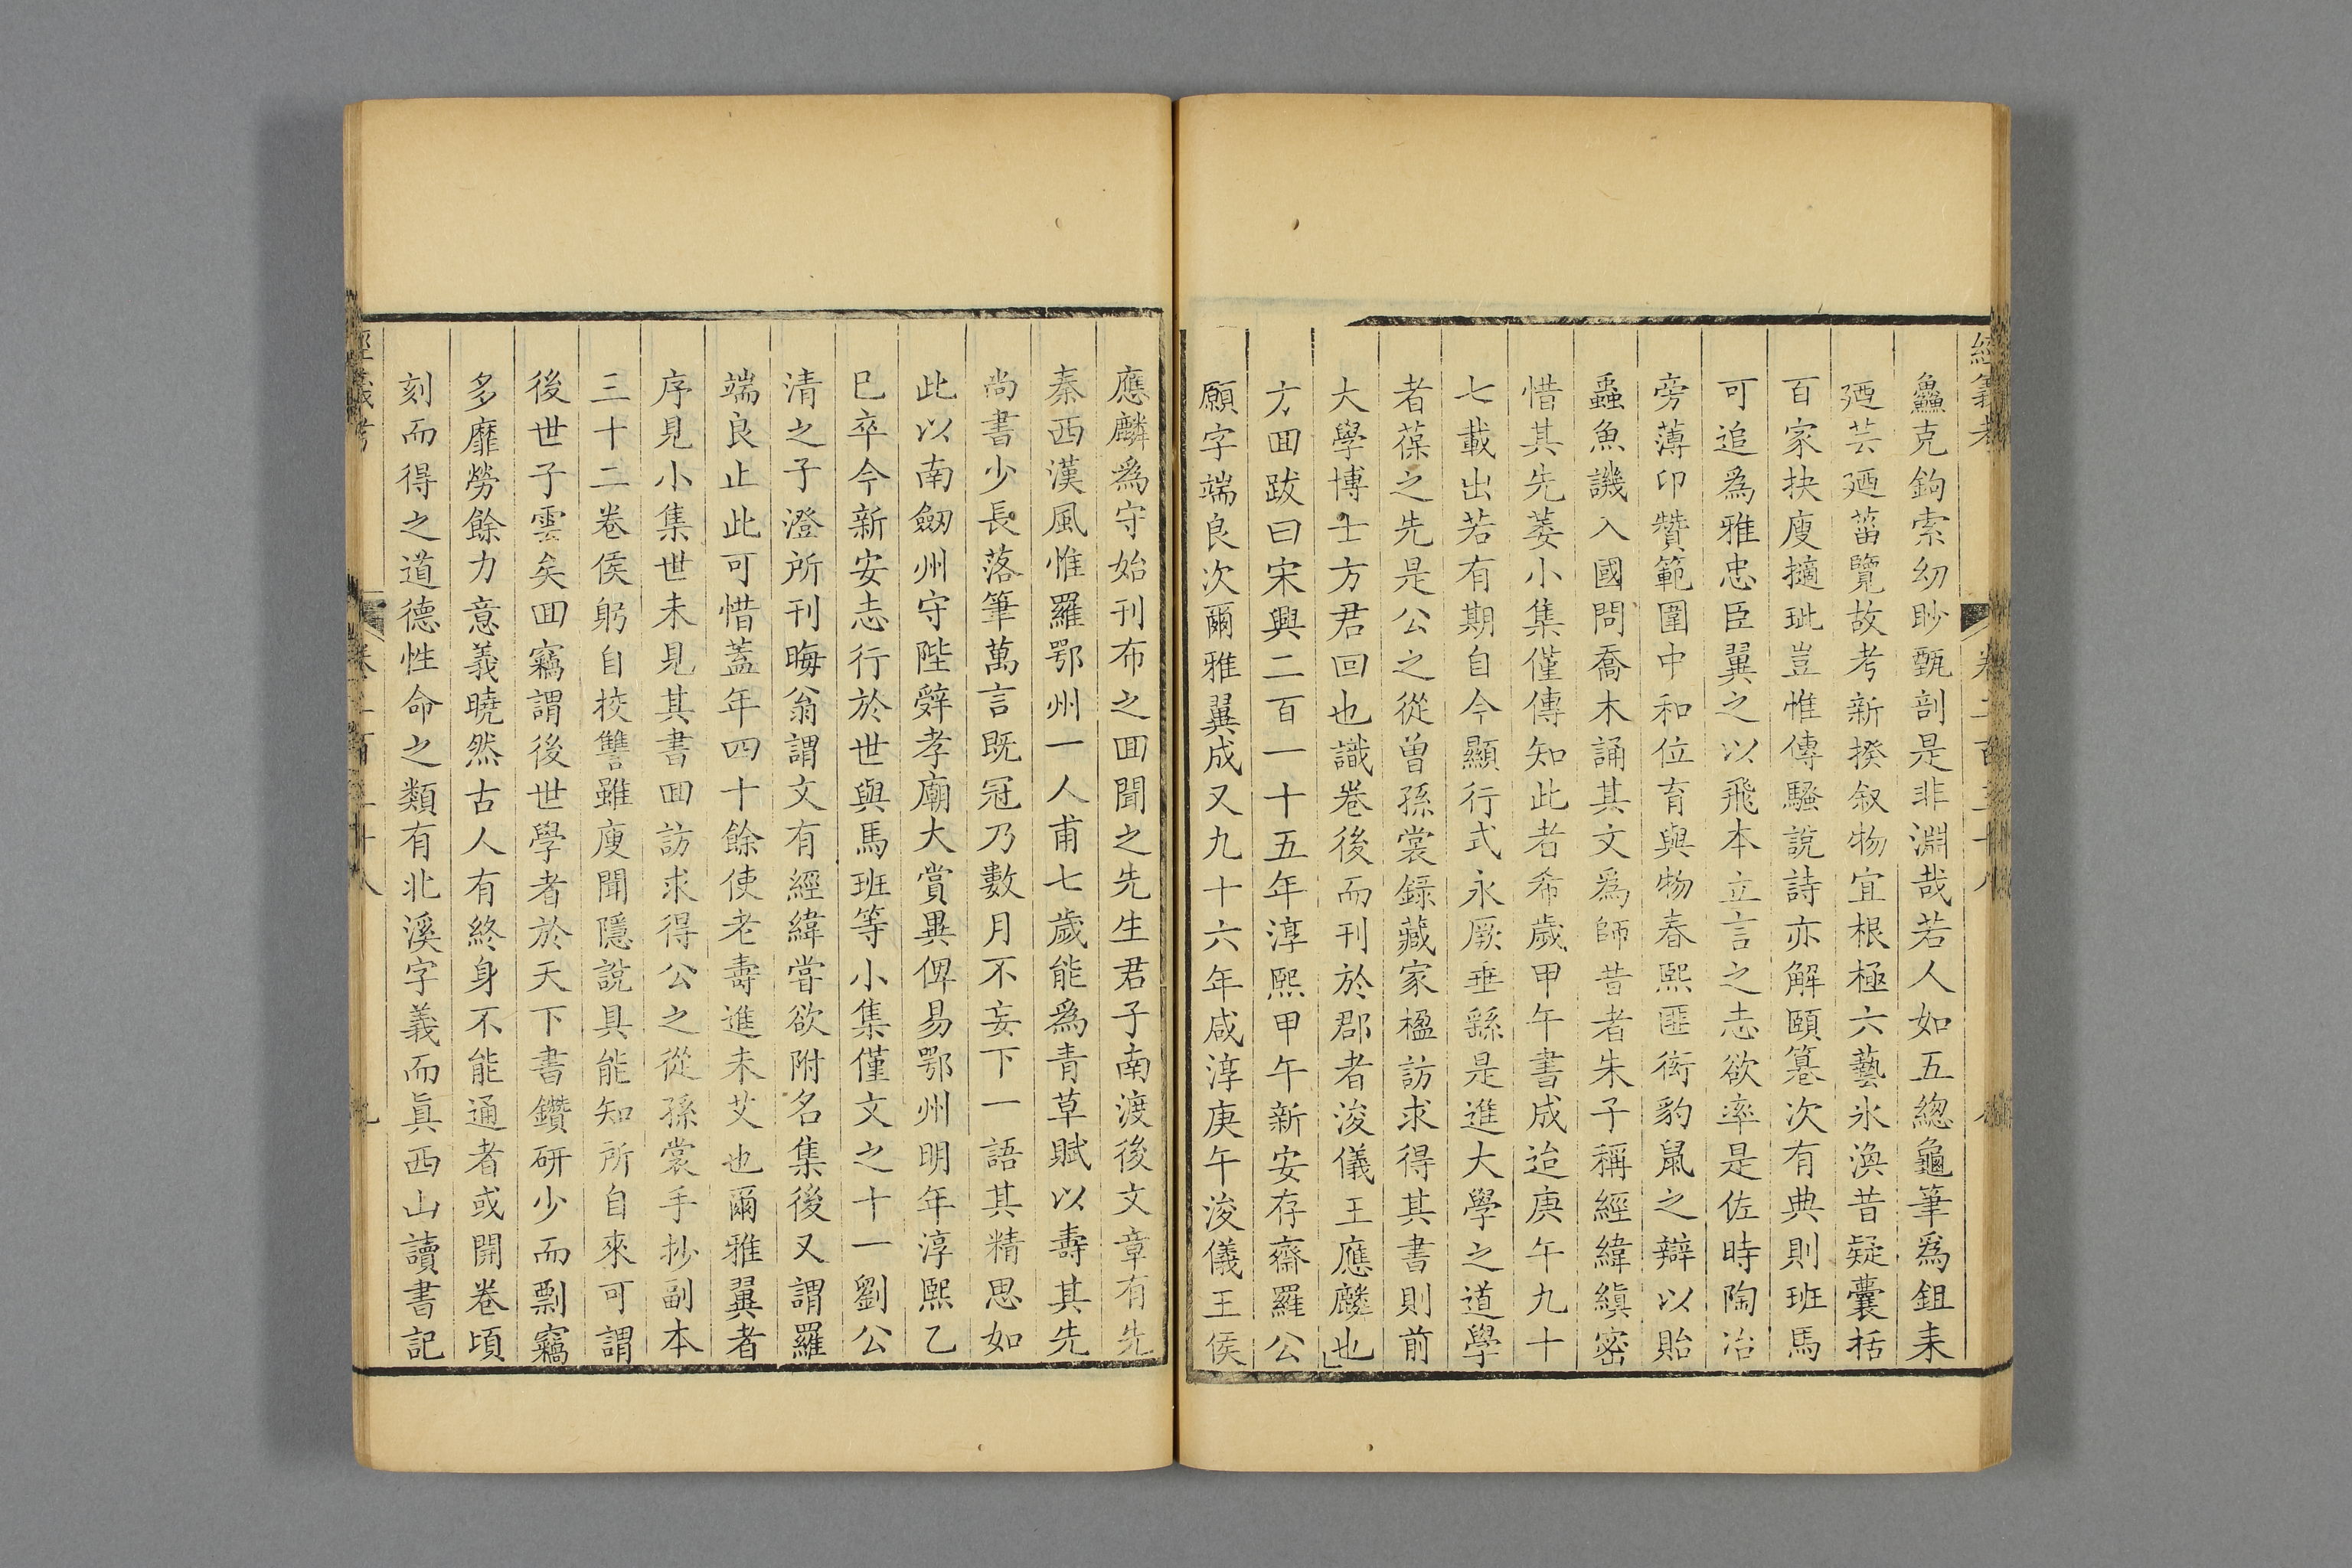 鱻克鉤索幼眇甄剖是非淵哉若人如五總龜筆為鉏耒
𨒪芸𨒪菑覽故考新揆叙物宜根極六藝氷渙昔疑囊括
百家抉廋擿玼豈惟傳騷說詩亦解頤篹次有典則班馬
可追為雅忠臣翼之以飛本立言之志欲率是佐時陶冶
旁薄印贊範圍中和位育與物春熙匪衒豹鼠之辯以貽
蟲魚譏入國問喬木誦其文為師昔者朱子稱經緯縝密
惜其先萎小集僅傳知此者希歲甲午書成迨庚午九十
七載出若有期自今顯行式永厥垂繇是進大學之道學
者葆之先是公之從曾孫裳錄藏家楹訪求得其書則前
大學博士方君回也識卷後而刊於郡者浚儀王應麟也
方囬跋曰宋興二百一十五年淳熙甲午新安存齋羅公
願字端良次爾雅翼成又九十六年咸淳庚午浚儀王侯
應麟為守始刊布之囬聞之先生君子南渡後文章有先
秦西漢風惟羅鄂州一人甫七歲能為青草賦以壽其先
尚書少長落筆萬言既冠乃數月不妄下一語其精思如
此以南劒州守陛辭孝廟大賞異俾易鄂州明年淳熙乙
巳卒今新安志行於世與馬班等小集僅文之十一劉公
清之子澄所刊晦翁謂文有經緯嘗欲附名集後又謂羅
端良止此可惜蓋年四十餘使老壽進未艾也爾雅翼者
序見小集世未見其書囬訪求得公之從孫裳手抄副本
三十二卷侯躬自校讐雖廋聞隱說具能知所自來可謂
後世子雲矣囬竊謂後世學者於天下書鑽研少而剽竊
多靡勞餘力意義曉然古人有終身不能通者或開卷頃
刻而得之道德性命之類有北溪字義而眞西山讀書記